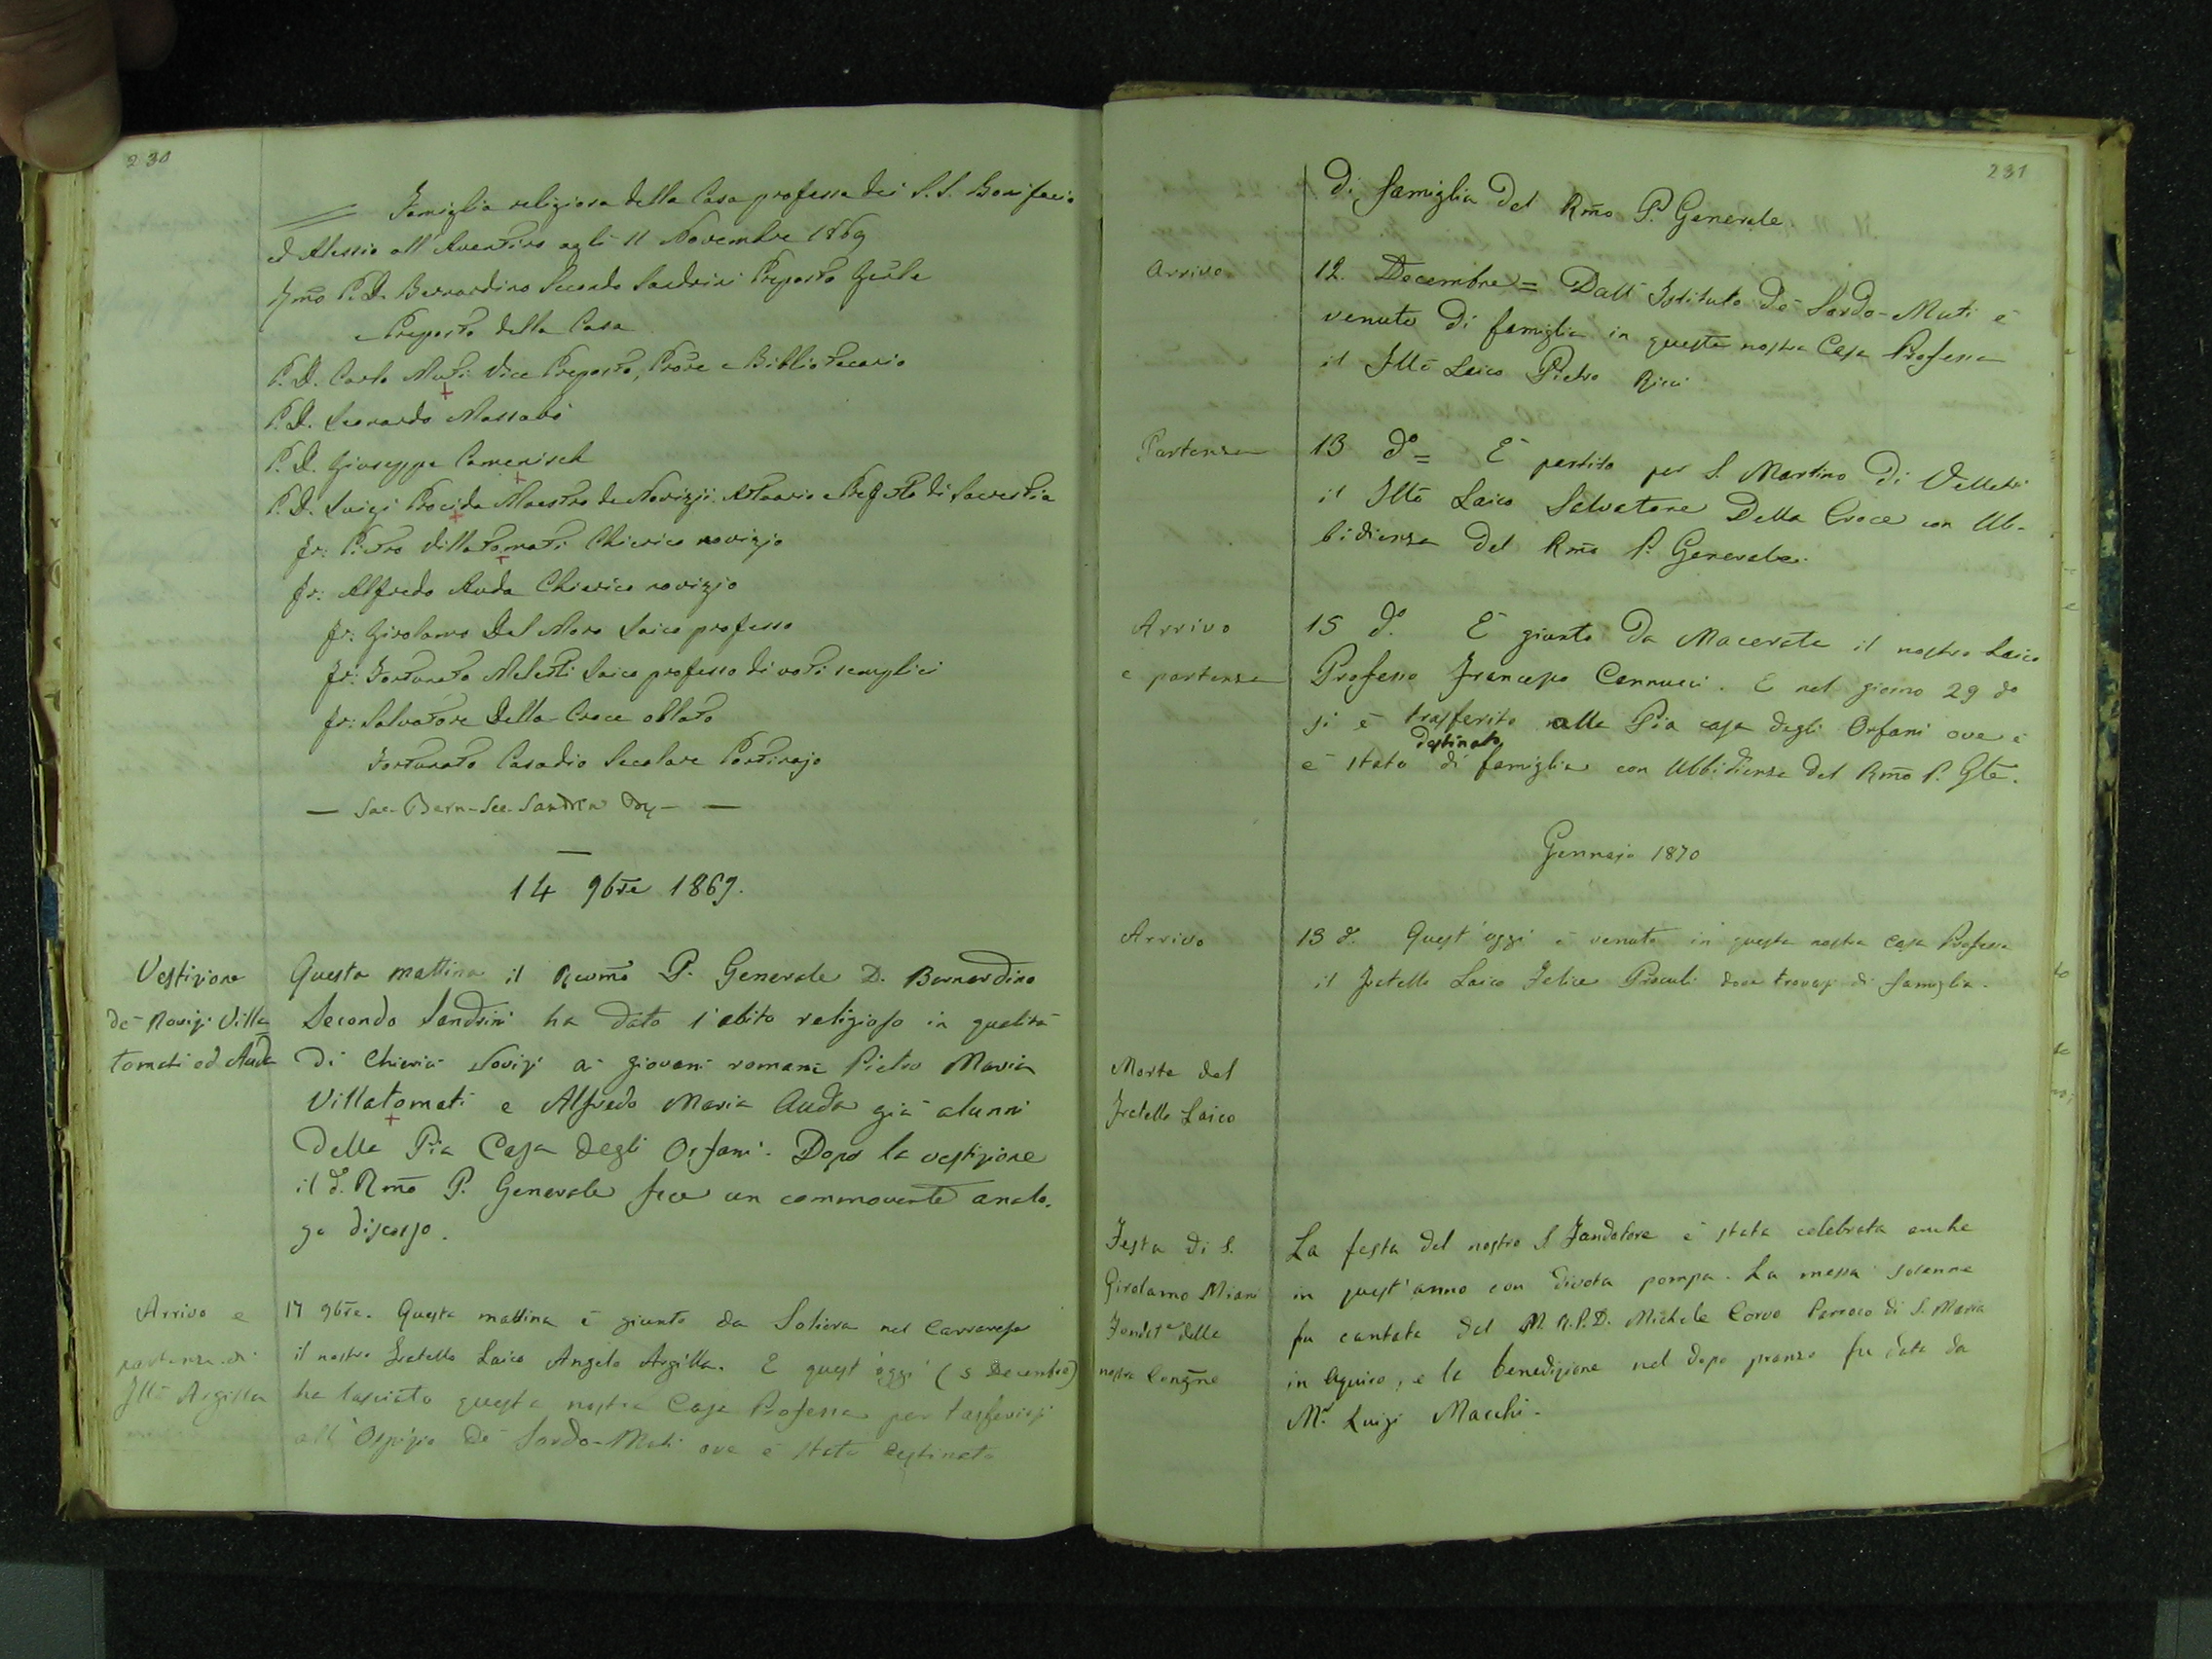 230
Famiglia religiosa della Casa professa dei S.S. Bonifacio
ed Alessio all'Aventino agli 11 Novembre 1869
P. D. Bernardino Secondo Sandrini Preposto Gēnle
e Preposto della Casa
P. D. Carlo Muti Vice Preposto, Prōre e Bibliotecario
P. D. Leonardo Massabò
P. D. Giuseppe Camenisch
P. D. Luigi Procida Maestro de Novizzi Attuario e Prefetto di Sacrestia
Fr: Pietro Villatomati Chierico novizio
Fr: Alfredo Auda Chierico novizio
Fr: Girolamo Del Moro Laico professo
Fr: Fortunato Laico professo di voti semplici
Fr: Salvatore Della Croce oblato
Fortunato Casadio Secolare Portinajo
— Sac. Bern. Sec. Sandrini —
14 9bre 1869.
Vestizione
de' Novizi Villa
tomati ed Auda
Questa mattina il Revmo P. Generale D. Bernardino
Secondo Sandrini ha dato l'abito religioso in qualità
di Chierici Novizi ai giovani romani Pietro Maria
Villatomati e Alfredo Maria Auda già alunni
della Pia Casa degli Orfani. Dopo la vestizione
il d. Rmo P. Generale fece un commovente analo-
go discorso.
Arrivo e
partenza di
Fllo Argilla
17 9bre. Questa mattina è giunto da Soliera nel Carrarese
il nostro Fratello Laico Angelo Argilla. E quest'oggi (5 Decembre)
ha lasciato questa nostra Casa Professa per trasferirsi
all'Ospizio de' Sordo-Muti ove è stato destinato
231
di famiglia del Rmo P. Generale
Arrivo
12. Decembre = Dall'Istituto de' Sordo-Muti è
venuto di famiglia in questa nostra Casa Professa
il Fllo Laico Pietro Ricci
Partenza
13 do = È partito per S. Martino di Velletri
il Fllo Laico Salvatore Della Croce con Ub-
bidienza del Rmo P. Generale.
Arrivo
e partenza
15 do. È giunto da Macerata il nostro Laico
Professo Francesco Cannucci. E nel giorno 29 do
si è trasferito alla Pia casa degli Orfani ove è
destinato
è stato di famiglia con Ubbidienza del Rmo P. Gle.
Gennajo 1870
Arrivo
13 d. Quest'oggi è venuto in questa nostra Casa Professa
il Fratello Laico Felice Proculi dove trovasi di famiglia.
Morte del
Fratello Laico
Festa di S.
Girolamo Miani
Fondre della
nostra Congne
La festa del nostro S. Fondatore è stata celebrata anche
in quest'anno con divota pompa. La messa solenne
fu cantata dal M. R. P. D. Michele Corvo Parroco di S. Maria
in Aquiro, e la benedizione nel dopo pranzo fu data da
Mr Luigi Macchi.